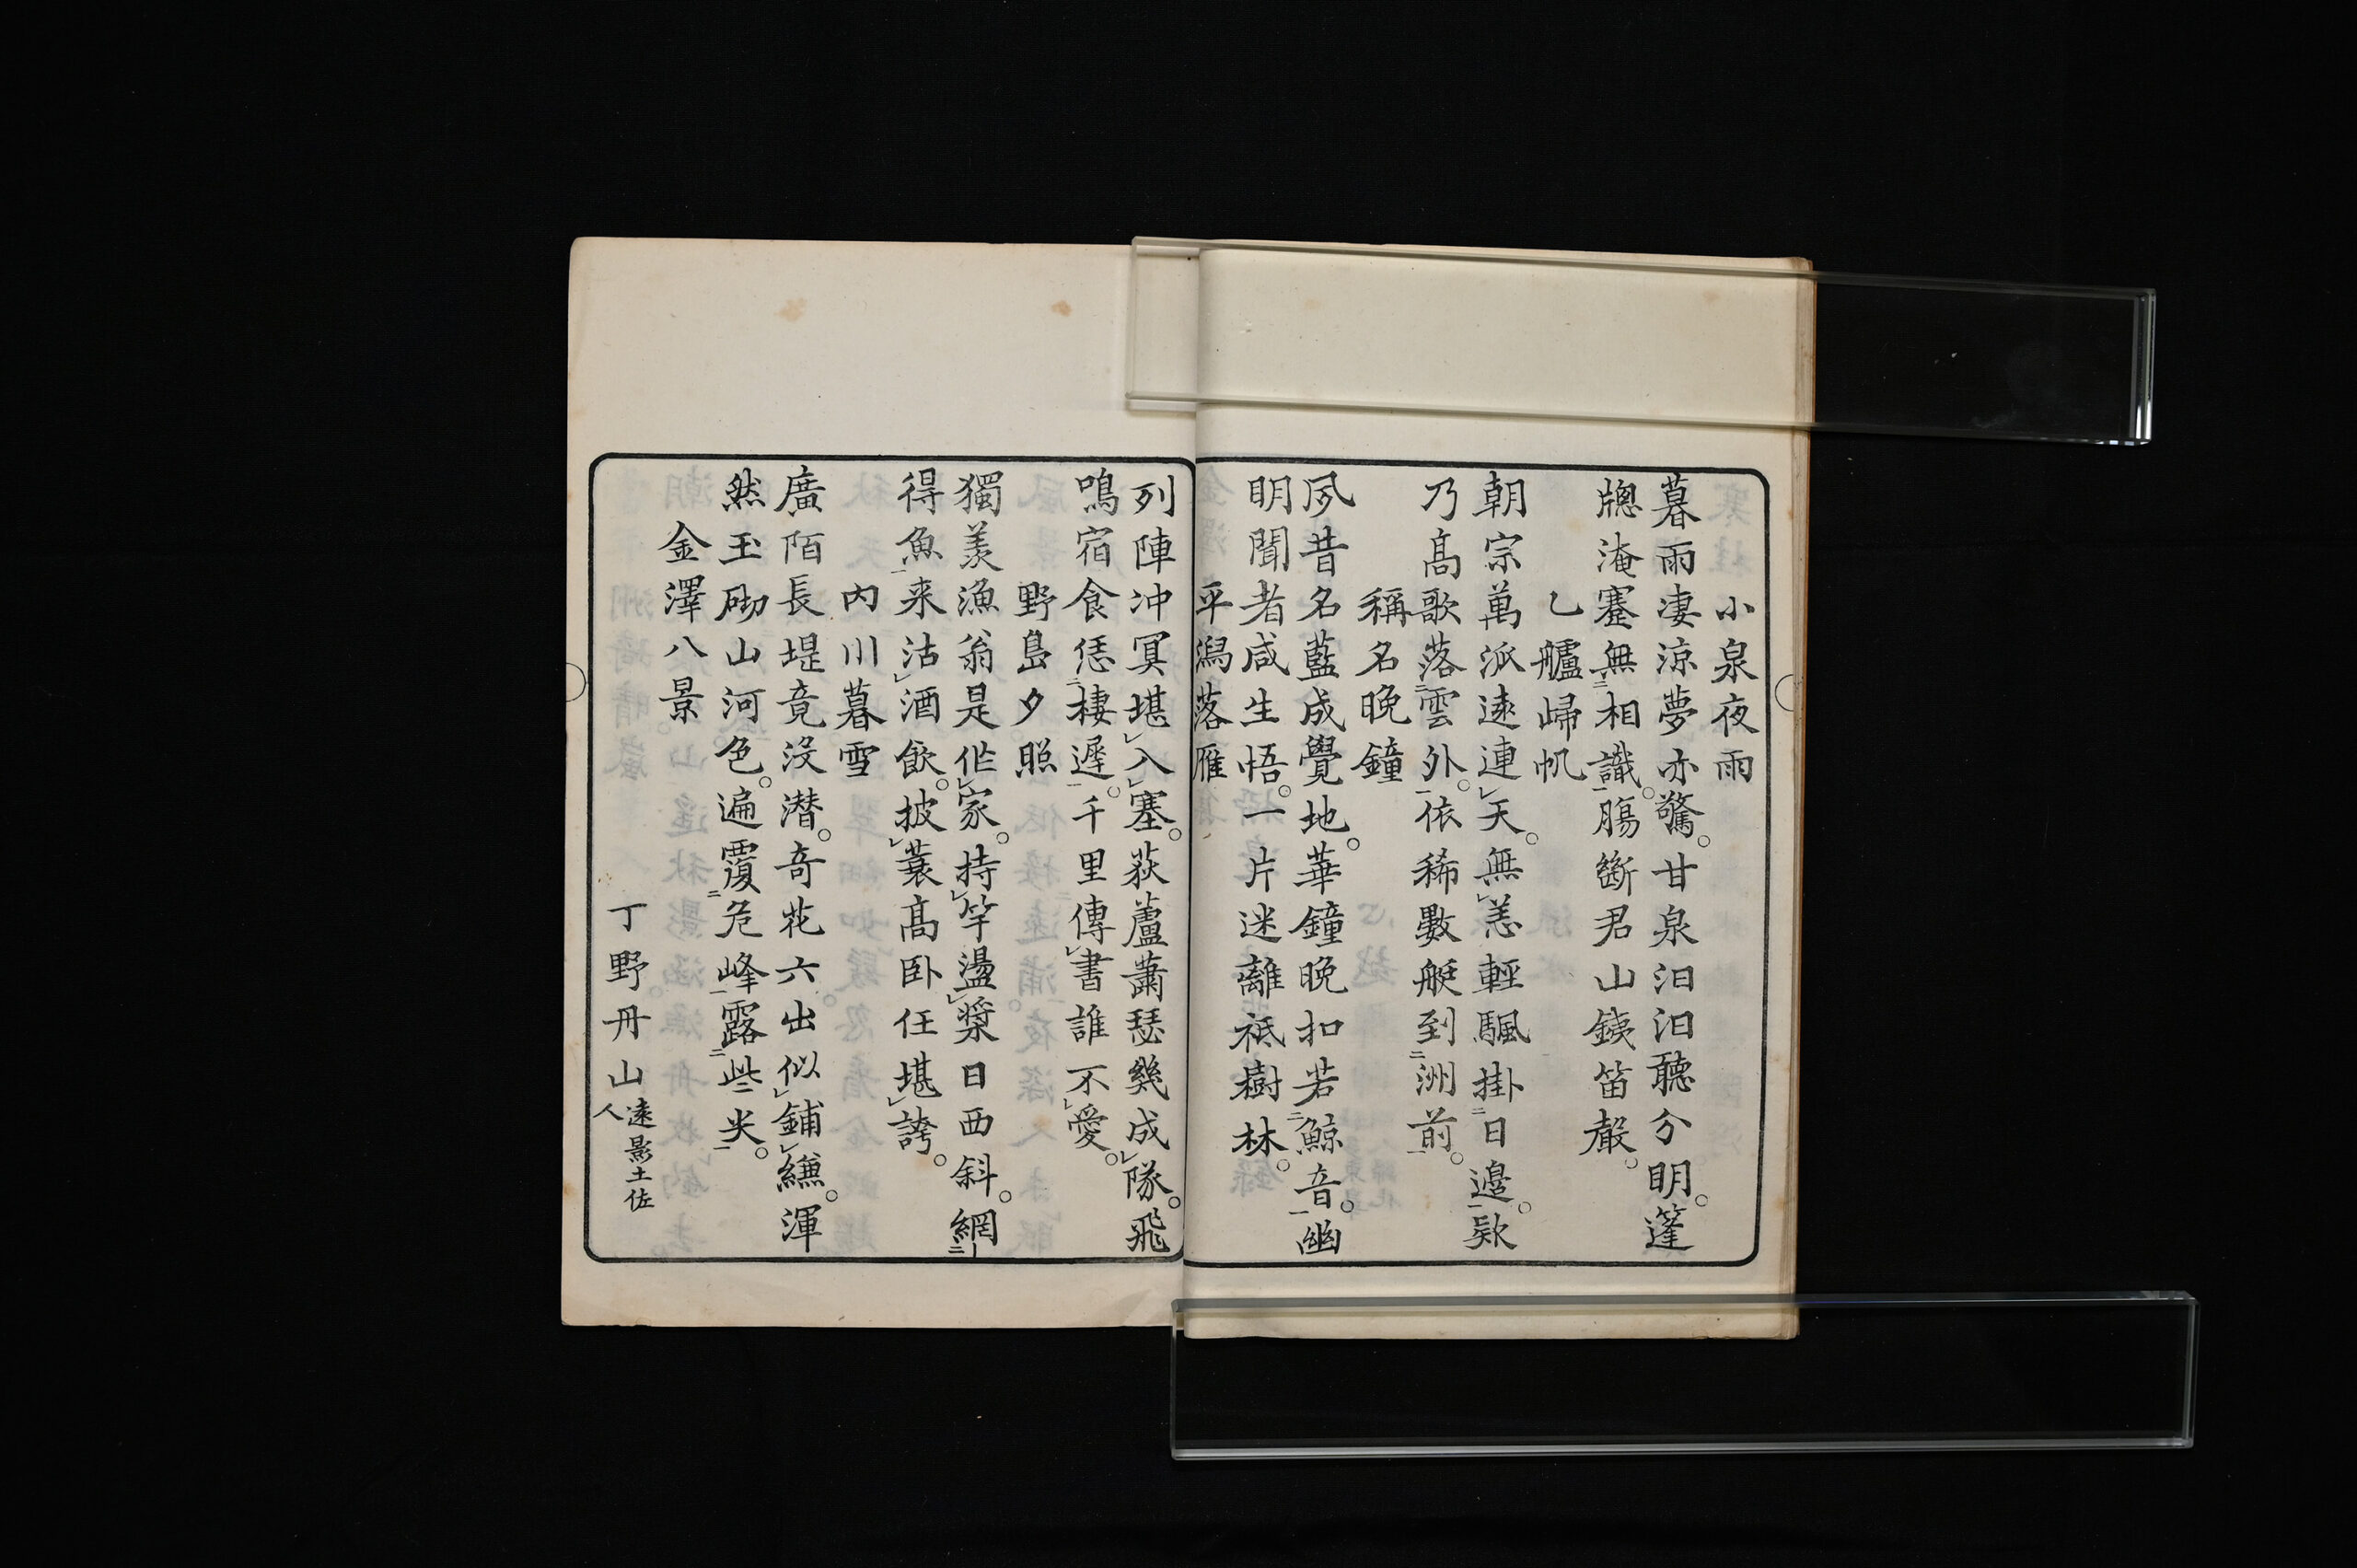 小泉夜雨
暮雨凄涼夢亦驚。甘泉汩汩聽分明。篷
牕淹蹇無二相識一。腸斷君山鉄笛聲。
乙艫歸帆
朝宗萬派遠連レ天。無レ恙輕颿掛二日邊一。欵
乃高歌落二雲外一。依稀數艇到二洲前一。
稱名晩鐘
夙昔名藍成覺地。華鐘晩扣若二鯨音一。幽
明聞者咸生悟。一片迷離祇樹林。
平潟落雁
列陣冲冥堪レ入レ塞。荻蘆蕭瑟幾成レ隊。飛
鳴宿食恁二棲遲一。千里傳レ書誰不レ愛。
野島夕照
獨羨漁翁是作レ家。持レ竿盪レ槳日西斜。網二
得魚一来沽レ酒飲。披レ蓑高臥任堪レ誇。
内川暮雪
廣陌長堤竟没潜。奇花六出似レ鋪レ縑。渾
然玉砌山河色。遍覆二危峰一露二些尖一。
金澤八景
丁野丹山遠影土佐人